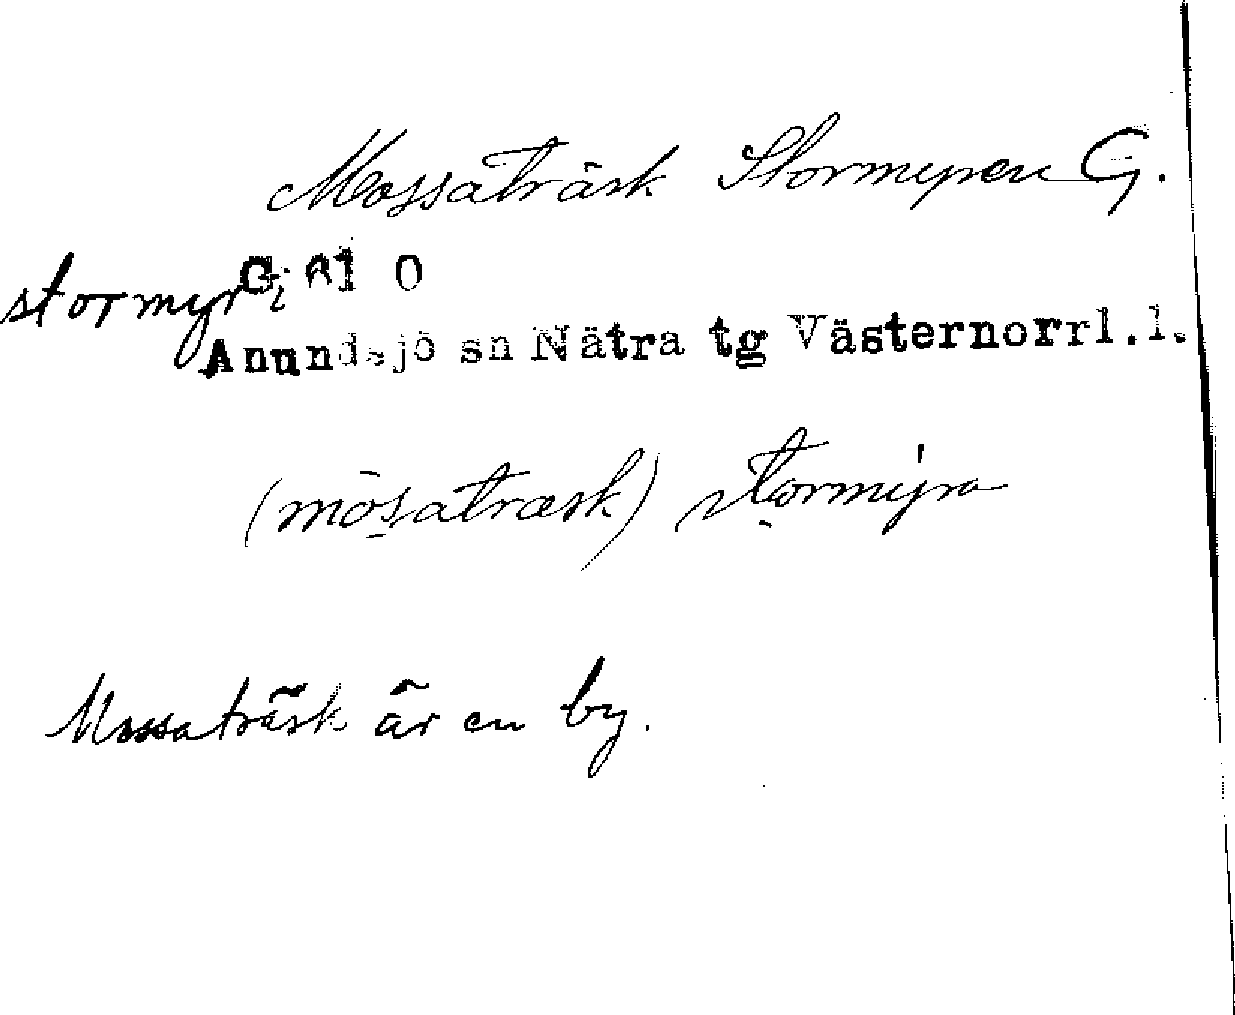 Mossaträsk Stormyren G.
stormyr G; 61 0
Anundsjö sn Nätra tg Västernorrl.l.
(mösatræsk) stormýra
Mossaträsk är en by.